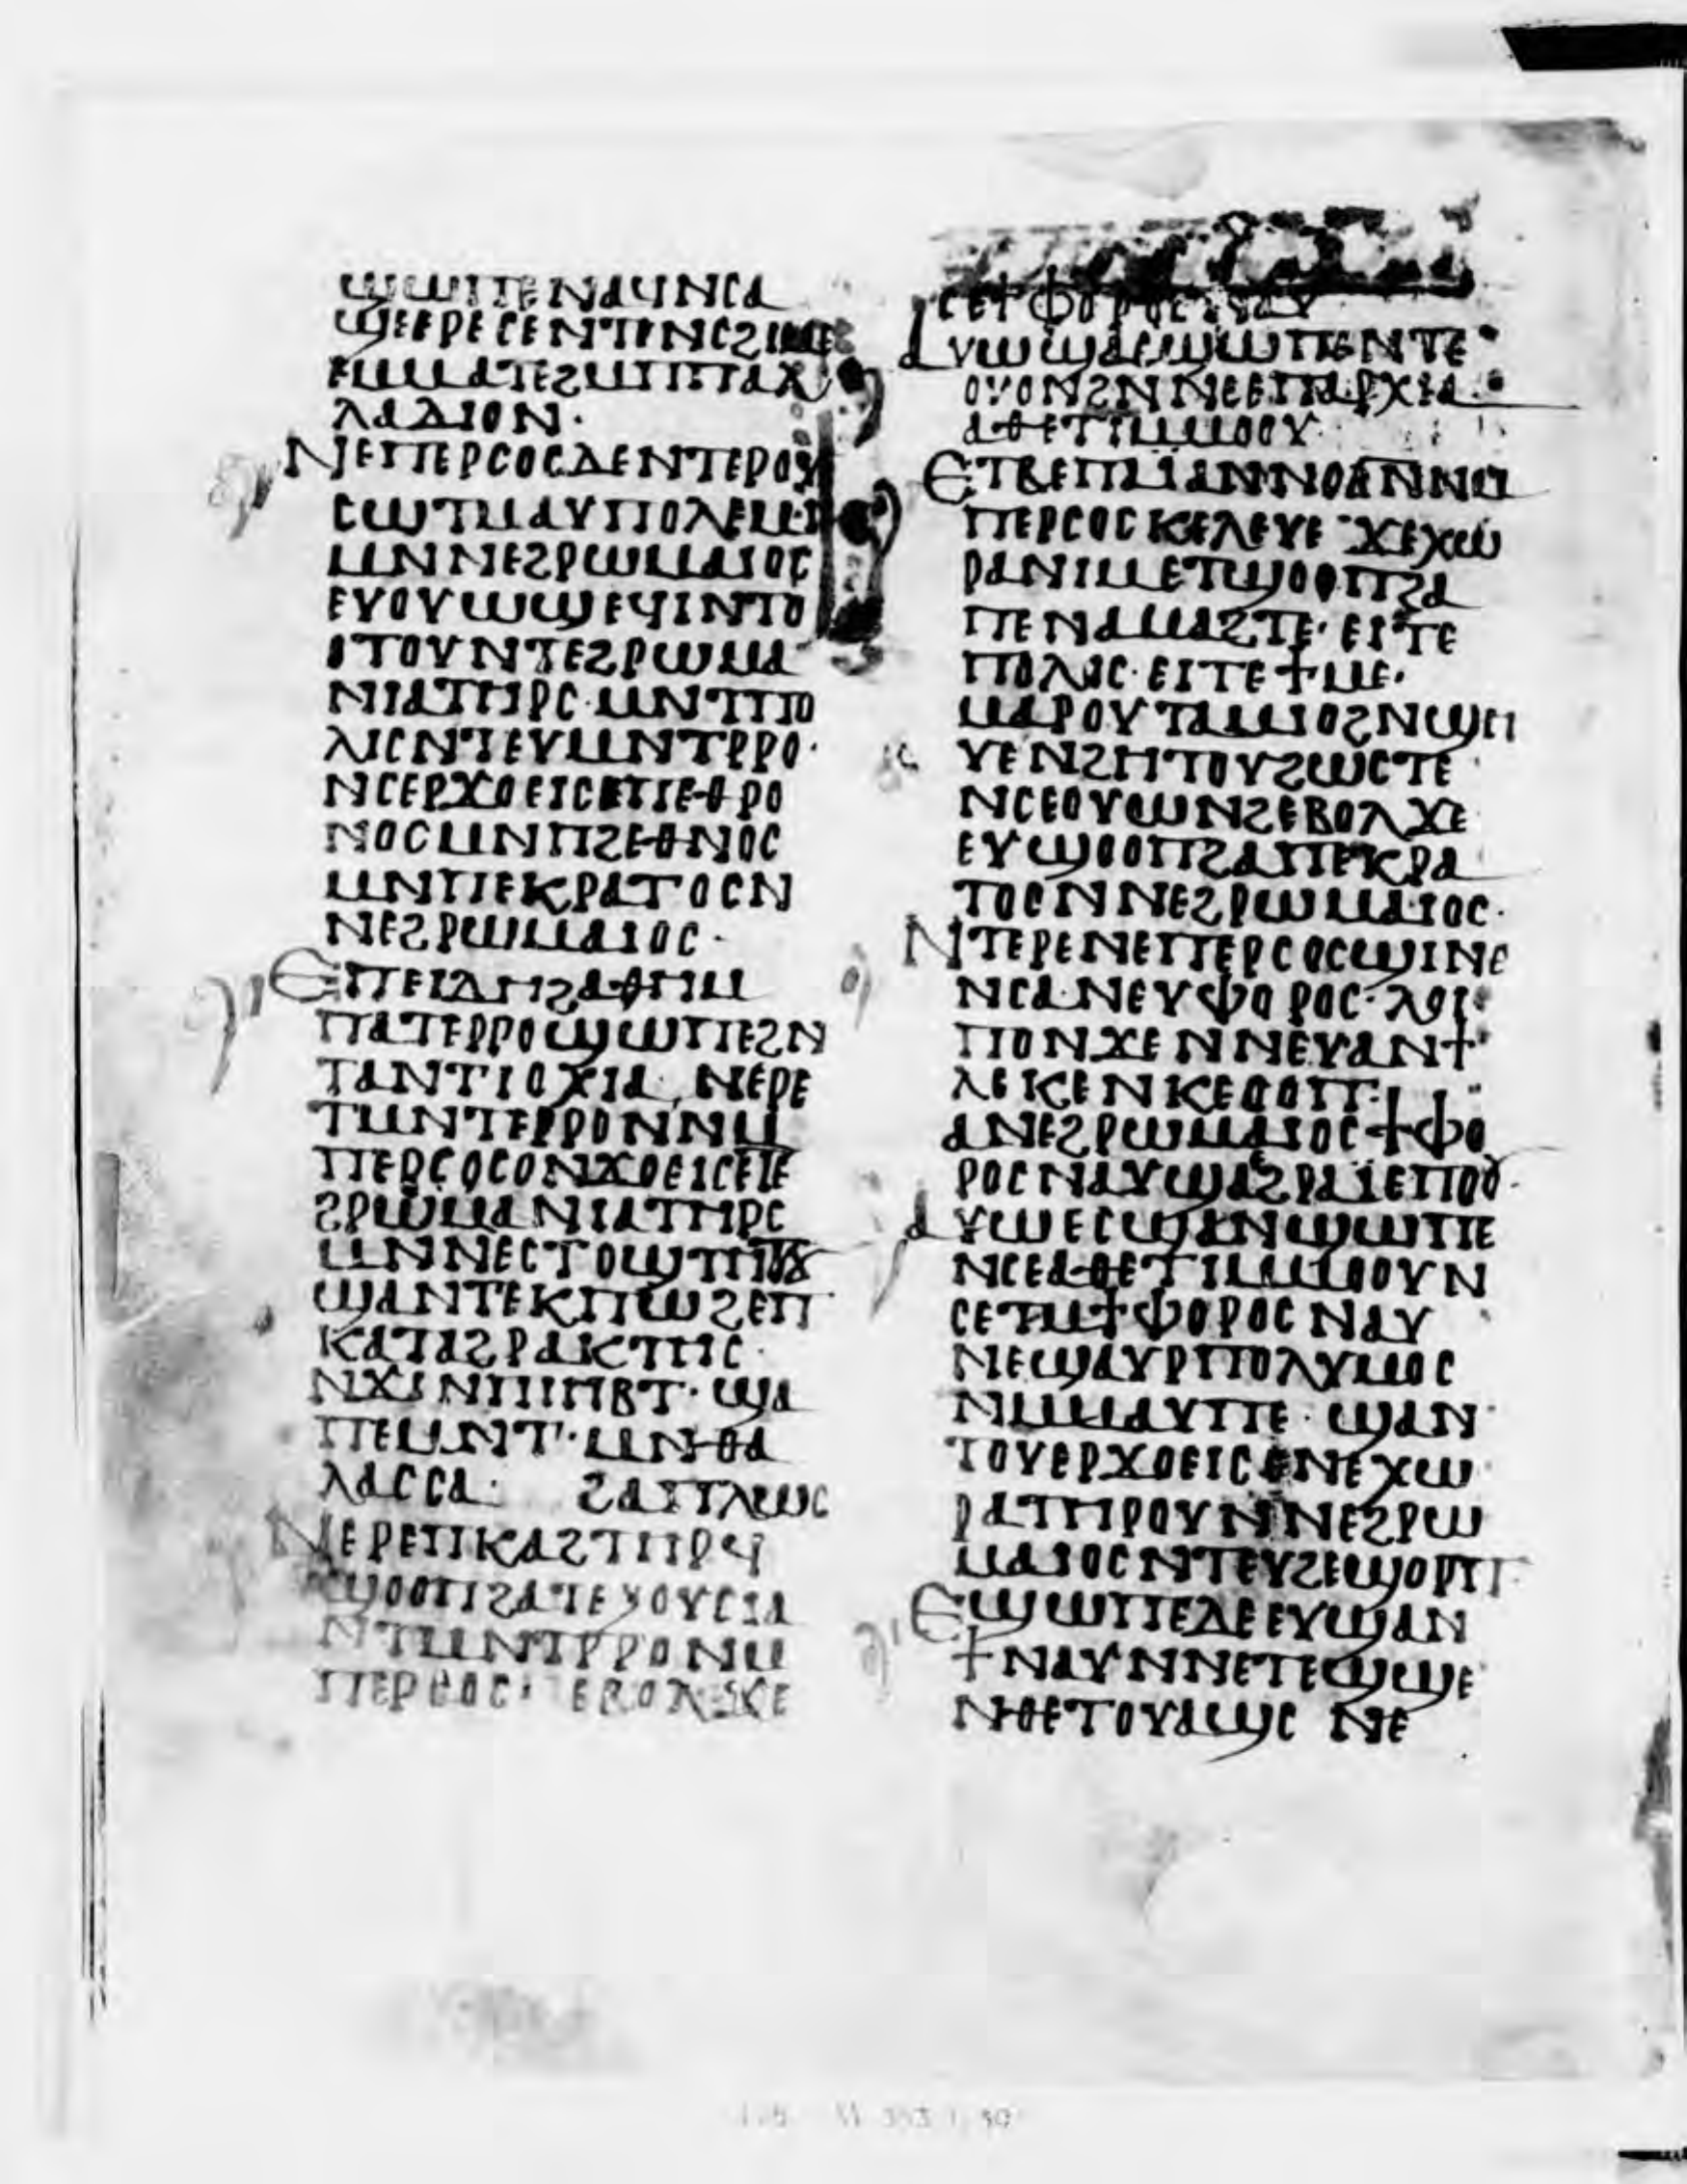 ϣⲱⲡⲉⲛⲁϥⲛϭⲓ
ϣⲉⲉⲣⲉⲥⲉⲛⲧⲉⲛⲥϩⲓⲙⲉ
ⲉⲙⲙⲁⲧⲉϩⲙⲡⲡⲁⲗ
ⲗⲁⲇⲓⲟⲛ·
ⲛⲉⲡⲉⲣⲥⲟⲥⲇⲉⲛⲧⲉⲣⲟⲩ
ⲥⲱⲧⲙⲁⲩⲡⲟⲗⲉⲙⲓ
ⲙⲛⲛⲉϩⲣⲱⲙⲁⲓⲟⲥ
ⲉⲩⲟⲩⲱϣⲉϥⲓⲛⲧⲟ
ⲟⲧⲟⲩⲛⲧⲉϩⲣⲱⲙⲁ
ⲛⲓⲁⲧⲏⲣⲥ·ⲙⲛⲧⲡⲟ
ⲗⲓⲥⲛⲧⲉⲩⲙⲛⲧⲣⲣⲟ·
ⲛⲥⲉⲣϫⲟⲉⲓⲥⲉⲡⲉⲑⲣⲟ
ⲛⲟⲥⲙⲛⲡϩⲉⲑⲛⲟⲥ
ⲙⲛⲡⲉⲕⲣⲁⲧⲟⲥⲛ
ⲛⲉϩⲣⲱⲙⲁⲓⲟⲥ·
ⲉⲡⲉⲓⲇⲏϩⲁⲑⲏⲙ
ⲡⲁⲧⲉⲣⲣⲟϣⲱⲡⲉϩⲛ
ⲧⲁⲛⲧⲓⲟⲭⲓⲁ, ⲛⲉⲣⲉ
ⲧⲙⲛⲧⲉⲣⲣⲟⲛⲛⲙ
ⲡⲉⲣⲥⲟⲥⲟⲛϫⲟⲉⲓⲥⲉⲧⲉ
ϩⲣⲱⲙⲁⲛⲓⲁⲧⲏⲣⲥ
ⲙⲛⲛⲉⲥⲧⲟϣⲧⲏⲣⲟⲩ
ϣⲁⲛⲧⲉⲕⲡⲱϩⲉⲡ
ⲕⲁⲧⲁϩⲣⲁⲕⲧⲏⲥ·
ⲛϫⲓⲛⲡⲓⲏⲃⲧ· ϣⲁ
ⲡⲉⲙⲛⲧ·ⲙⲛⲑⲁ
ⲗⲁⲥⲥⲁ· ϩⲁⲡⲗⲱⲥ
ⲛⲉⲣⲉⲡⲕⲁϩⲧⲏⲣϥ
ϣⲟⲟⲡϩⲁⲧⲉⲝⲟⲩⲥⲓⲁ
ⲛⲧⲙⲛⲧⲣⲣⲟⲛⲙ
ⲡⲉⲣⲥⲟⲥ· ⲉⲃⲟⲗϫⲉ
ⲥⲉϯⲫⲟⲣⲟⲥⲛⲁⲩ
ⲁⲩⲱϣⲁⲥϣⲱⲡⲉⲛⲧⲉ
ⲟⲩⲟⲛϩⲛⲛⲉⲉⲡⲁⲣⲭⲓⲁ
ⲁⲑⲉⲧⲓⲙⲙⲟⲟⲩ·
ⲉⲧⲃⲉⲡⲁⲓⲁⲛⲛⲟϭⲛⲛⲙ
ⲡⲉⲣⲥⲟⲥⲕⲉⲗⲉⲩⲉ ϫⲉⲭⲱ
ⲣⲁⲛⲓⲙⲉⲧϣⲟⲟⲡϩⲁ
ⲡⲉⲛⲁⲙⲁϩⲧⲉ· ⲉⲓⲧⲉ
ⲡⲟⲗⲓⲥ·ⲉⲓⲧⲉϯⲙⲉ·
ⲙⲁⲣⲟⲩⲧⲁⲙⲓⲟϩⲛϣⲏ
ⲩⲉⲛϩⲏⲧⲟⲩϩⲱⲥⲧⲉ
ⲛⲥⲉⲟⲩⲱⲛϩⲉⲃⲟⲗϫⲉ
ⲉⲩϣⲟⲟⲡϩⲁⲡⲉⲕⲣⲁ
ⲧⲟⲥⲛⲛⲉϩⲣⲱⲙⲁⲓⲟⲥ·
ⲛⲧⲉⲣⲉⲛⲉⲡⲉⲣⲥⲟⲥϣⲓⲛⲉ
ⲛⲥⲁⲛⲉⲩⲫⲟⲣⲟⲥ·ⲗⲟⲓ
ⲡⲟⲛϫⲉⲛⲛⲉⲩⲁⲛϯ
ⲗⲉⲕⲉⲛⲕⲉⲥⲟⲡ·
ⲁⲛⲉϩⲣⲱⲙⲁⲓⲟⲥϯⲫⲟ
ⲣⲟⲥⲛⲁⲩϣⲁϩⲣⲁⲓⲉⲡⲟⲟⲩ·
ⲁⲩⲱⲉⲥϣⲁⲛϣⲱⲡⲉ
ⲛⲥⲉⲁⲑⲉⲧⲓⲙⲙⲟⲟⲩⲛ
ⲥⲉⲧⲙϯⲫⲟⲣⲟⲥⲛⲁⲩ
ⲛⲉϣⲁⲩⲣⲡⲟⲗⲩⲙⲟⲥ
ⲛⲙⲙⲁⲩⲡⲉ· ϣⲁⲛ
ⲧⲟⲩⲉⲣϫⲟⲉⲓⲥⲉⲛⲉⲭⲱ
ⲣⲁⲧⲏⲣⲟⲩⲛⲛⲉϩⲣⲱ
ⲙⲁⲓⲟⲥⲛⲧⲉⲩϩⲉϣⲟⲣⲡ
ⲉϣⲱⲡⲉⲇⲉⲉⲩϣⲁⲛ
ϯⲛⲁⲩⲛⲛⲉⲧⲉϣϣⲉ
ⲛⲑⲉⲧⲟⲩⲁϣⲥ ⲛⲉ